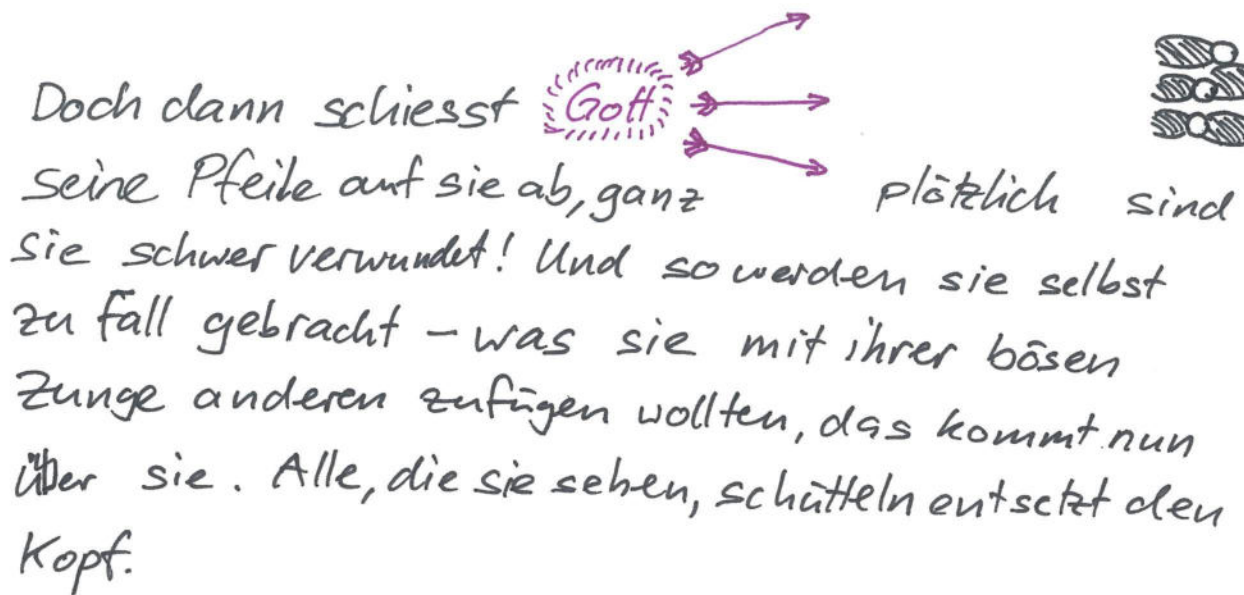 Doch dann schiesst Gott
seine Pfeile auf sie ab, ganz plötzlich sind
sie schwer verwundet! Und so werden sie selbst
zu Fall gebracht – was sie mit ihrer bösen
Zunge anderen zufügen wollten, das kommt nun
über sie. Alle, die sie sehen, schütteln entsetzt den
Kopf.